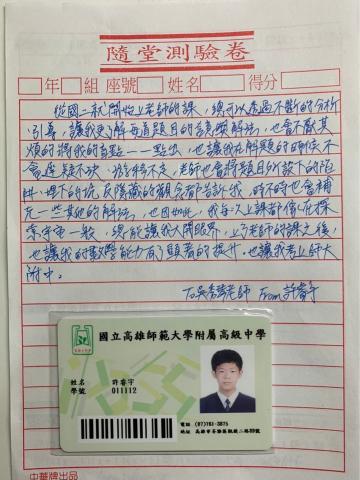 隨堂測驗卷
年 組 座號 姓名 得分
從國一就開始上老師的課，總可以透過不斷的分析
引導，讓我更了解每道題目的
解法，也會不厭其
煩的將我的盲點一一點出，也讓我在解題的時候不
會遲疑不決、
老師也會將題目所設下的陷
阱、埋下的坑及隱藏的觀念都告訴我，時不時也會補
充一些其他的解法，也因如此，我每次上課都像在探
索宇宙一般，總能讓我大開眼界，上了老師的課之後，
也讓我的數學能力有了顯著的提升，也讓我考上師大
附中。
To吳
老師 From許睿宇
國立高雄師範大學附屬高級中學
姓名 許睿宇
學號 011112
電話 (07)763-3875
地址 高雄市苓雅區凱旋二路89號
中華牌出品